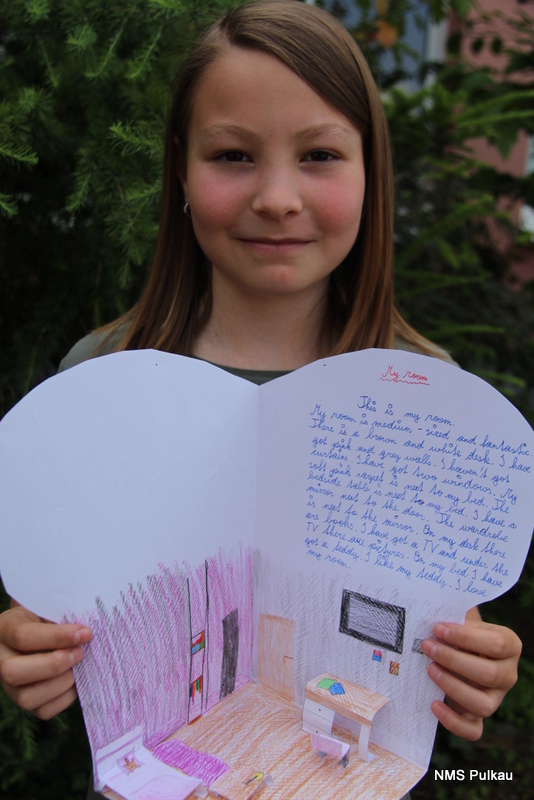 My room
This is my room.
My room is medium-sized and fantastic.
There is a brown and white desk. I have
got pink and grey walls. I haven't got
curtains. I have got two windows. My
soft pink carpet is next to my bed. The
bedside table is next to my bed. I have a
mirror next to the door. The wardrobe
is next to the mirror. On my desk there
are books. I have got a TV and under the
TV there are pictures. On my bed I have
got a teddy. I like my teddy. I love
my room.
NMS Pulkau